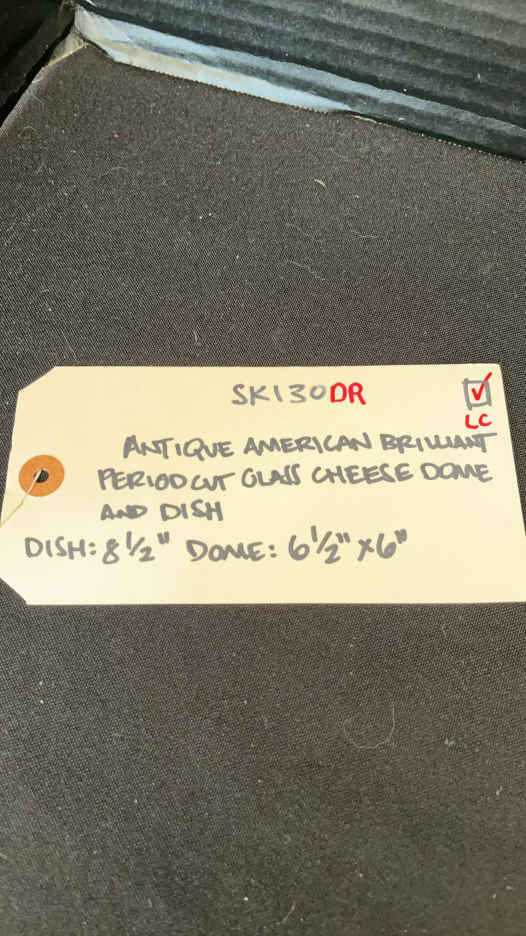 SK130DR
LC
ANTIQUE AMERICAN BRILLIANT
PERIOD CUT GLASS CHEESE DOME
AND DISH
DISH: 8 1/2" DOME: 6 1/2" x 6"